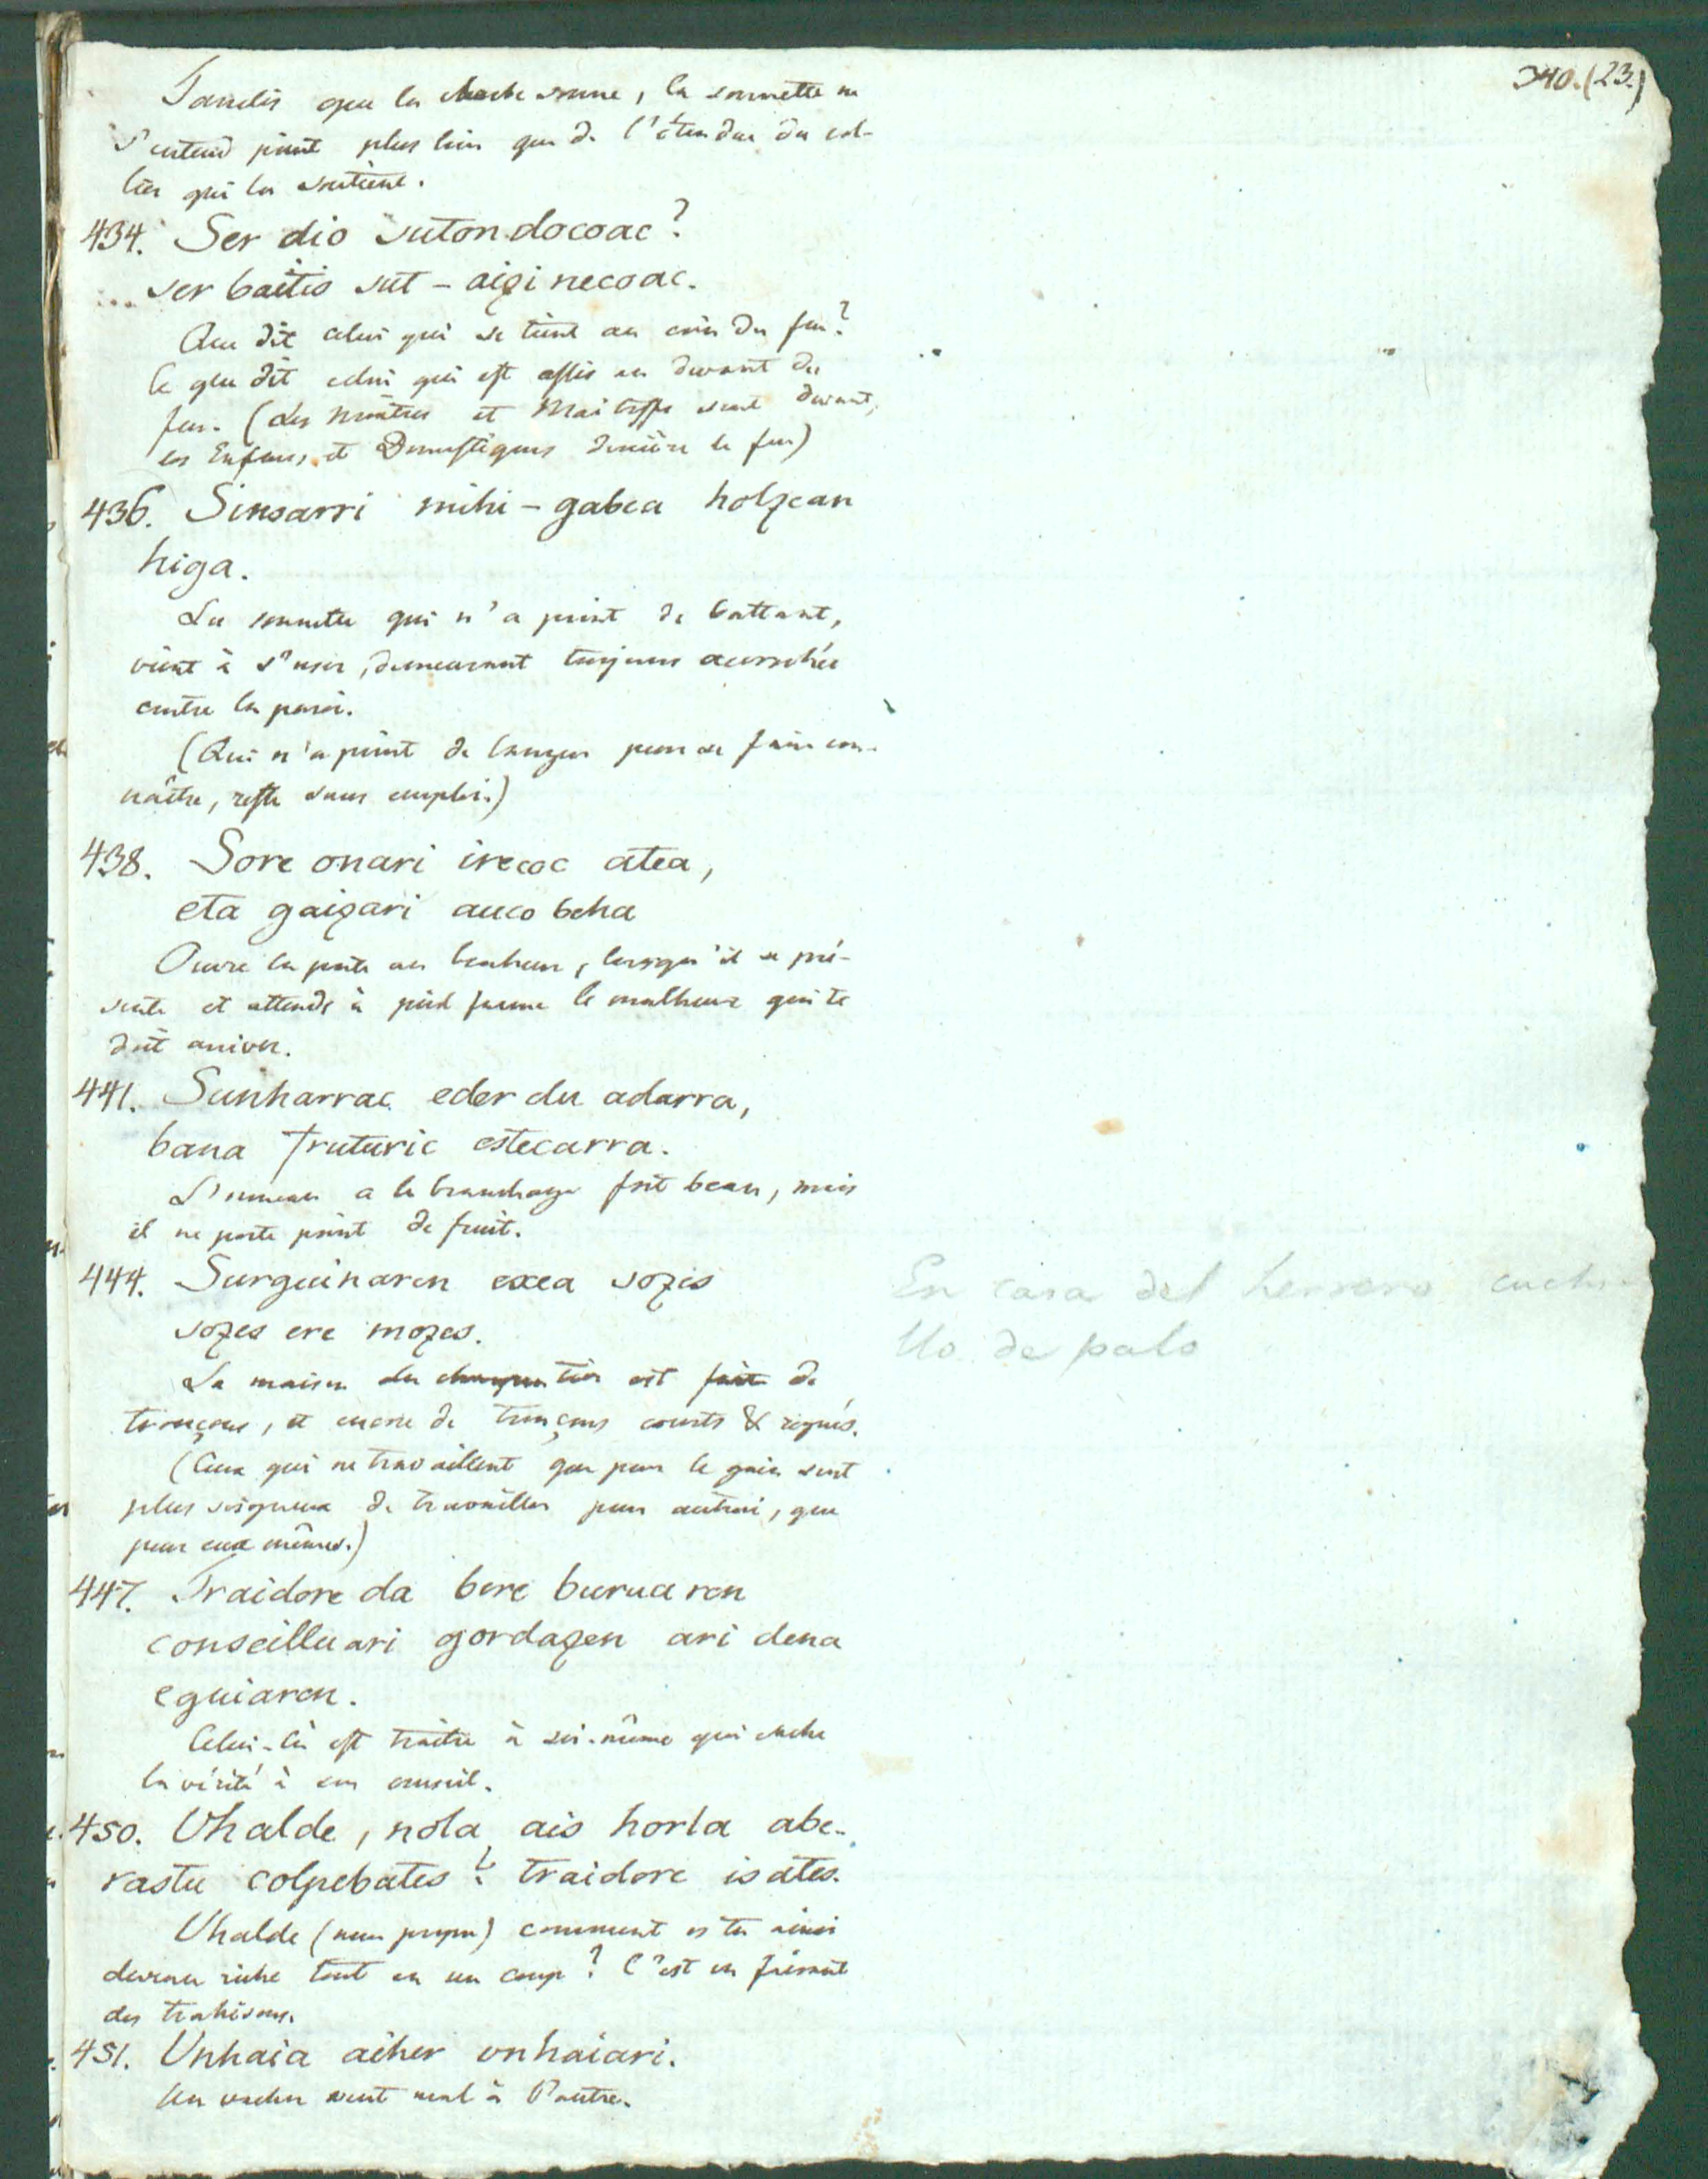 340.(23.)
Tandis que la cloche sonne, la sonnette ne
s'entend point plus loin que de l'étendue du col-
lier qui la soutient.
434. Ser dio sutondocoac?
ser baitio sut-aiçinecoac.
Que dit celui qui se tient au coin du feu?
le que dit celui qui est assis au devant du
feu. (Les maîtres et Maitresse sont devant,
les Enfans, et Domestiques derrière le feu)
436. Sinsarri mihi-gabea holçean
higa.
La sonnette qui n'a point de battant,
vient à s'user, demeurant toujours accrochée
contre la paroi.
(Qui n'a point de langue pour se faire con-
naître, reste sans emploi.)
438. Sore onari irecoc atea,
eta gaiçari auco beha
Ouvre la porte au bonheur, lorsqu'il se pré-
sente et attends à pied ferme le malheur qui te
doit arriver.
441. Sunharrac eder du adarra,
bana fruturic estecarra.
L'ormeau a le branchage fort beau, mais
il ne porte point de fruit.
444. Surguinaren exea soçes
soçes ere moçes.
La maison du charpentier est faite de
tronçons, et encore de tronçons courts & rognés.
(Ceux qui ne travaillent que pour le gain sont
plus soigneux de travailler pour autrui, que
pour eux mêmes.)
En casa del herrero cuchi-
llo de palo
447. Traidore da bere buruaren
conseilluari gordaçen ari dena
eguiaren.
Celui-là est traître à soi-même qui cache
la vérité à son conseil.
450. Uhalde, nola ais horla abe-
rastu colpebates? traidore isates.
Uhalde (nom propre) comment es tu ainsi
devenu riche tout en un coup? C'est en faisant
des trahisons.
451. Unhaia aiher unhaiari.
Un vacher veut mal à l'autre.